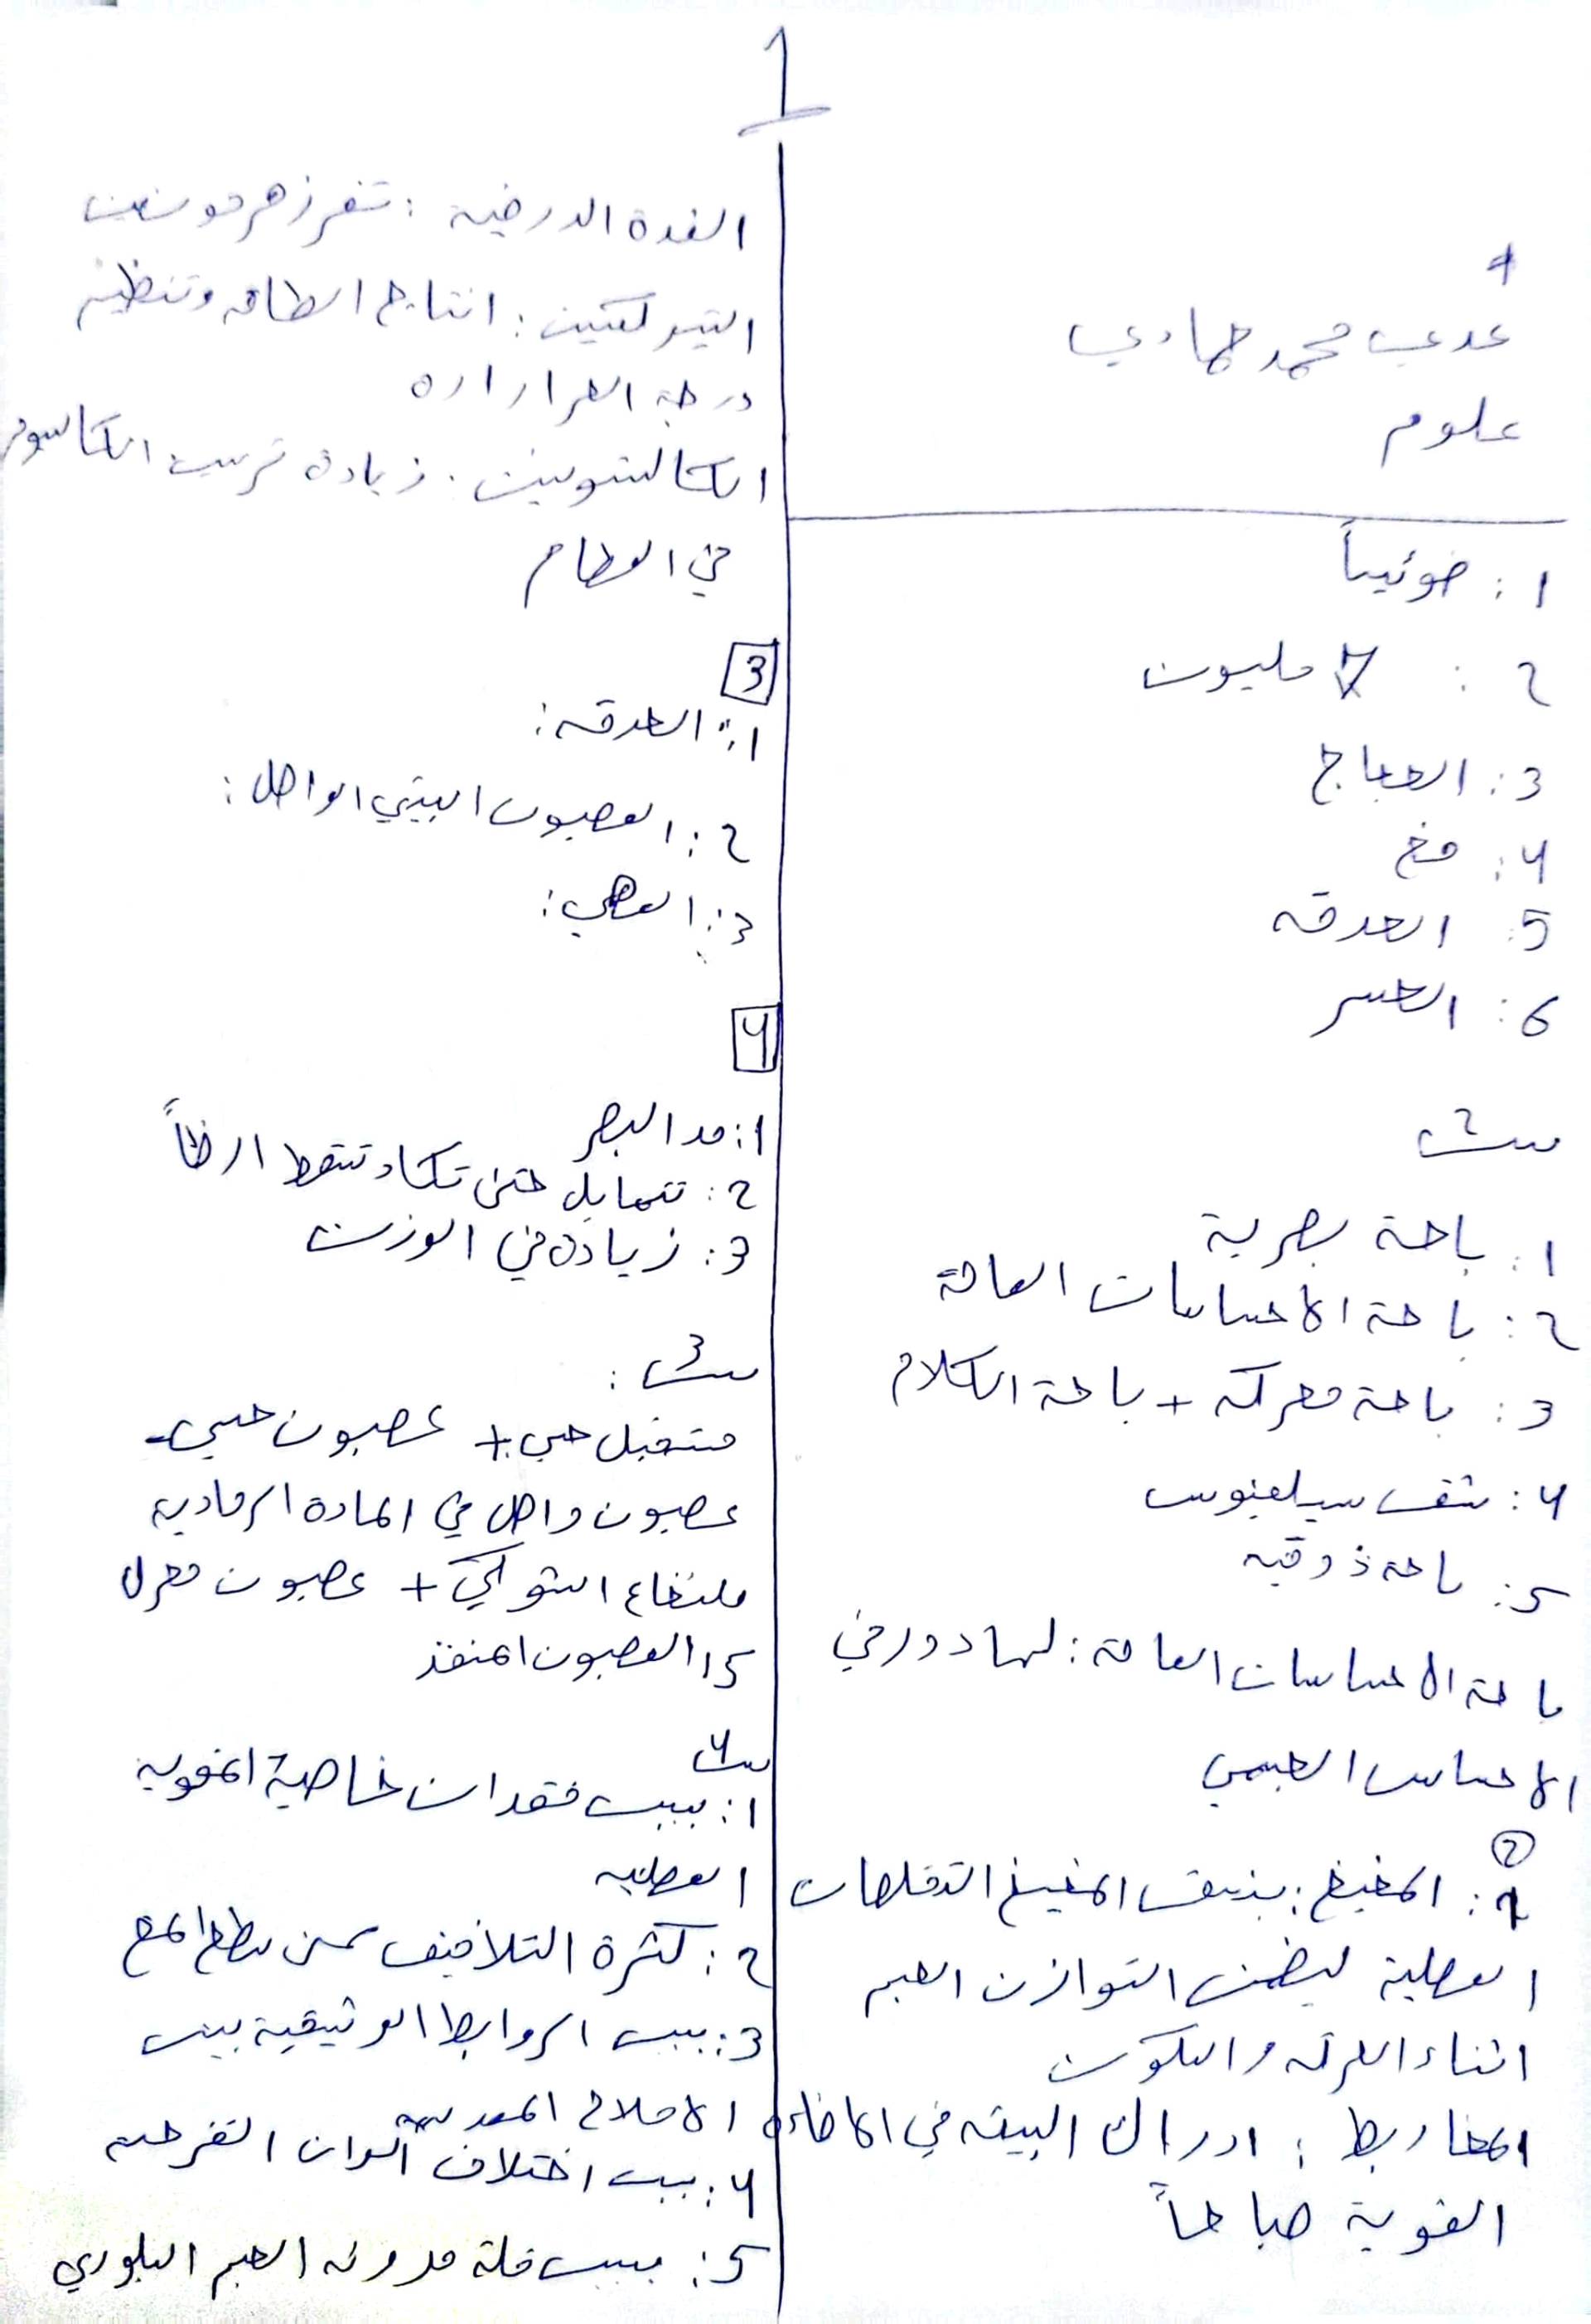 1
4
عدي محمد حمادي
علوم
1: ضوئياً
2: 7 مليون
3: الحجاج
4: مخ
5: الحدقه
6: الجسر
س2
1: باحة بصرية
2: باحة الاحساسات العامة
3: باحة محركه + باحة الكلام
4: شق سيلفيوس
5: باحة ذوقيه
باحة الاحساسات العامة: لها دور في
الاحساس الجسمي
2
1: المخيخ: ينسق المخيخ التقلصات
العضلية ليضمن التوازن الجسم
اثناء الحركه والسكون
المخاريط: ادراك البيئه في الاضاءه
القوية صباحاً
الغدة الدرقية: تفرز هرمونين
التيروكسين: انتاج الطاقه وتنظيم
درجة الحراراره
الكالستونين: زيادة ترسيب الكالسيوم
في العظام
3
1: الحدقه:
2: العصبون البيني الواصل:
3: العصي:
4
1: مد البصر
2: تتمايل حتى تكاد تسقط ارضاً
3: زيادة في الوزن
س3:
مستقبل حسي + عصبون حسي -
عصبون واصل في المادة الرمادية
ملنخاع الشوكي + عصبون محرك
5 العصبون المنفذ
س4
1: بسبب فقدان خاصية المقوية
العضليه
2: كثرة التلافيف على سطح المخ
3: بسبب الروابط الوثيقية بين
الاملاح المعدنية
4: بسبب اختلاف الوان القزحية
5: بسبب قلة مرونه الجسم البلوري